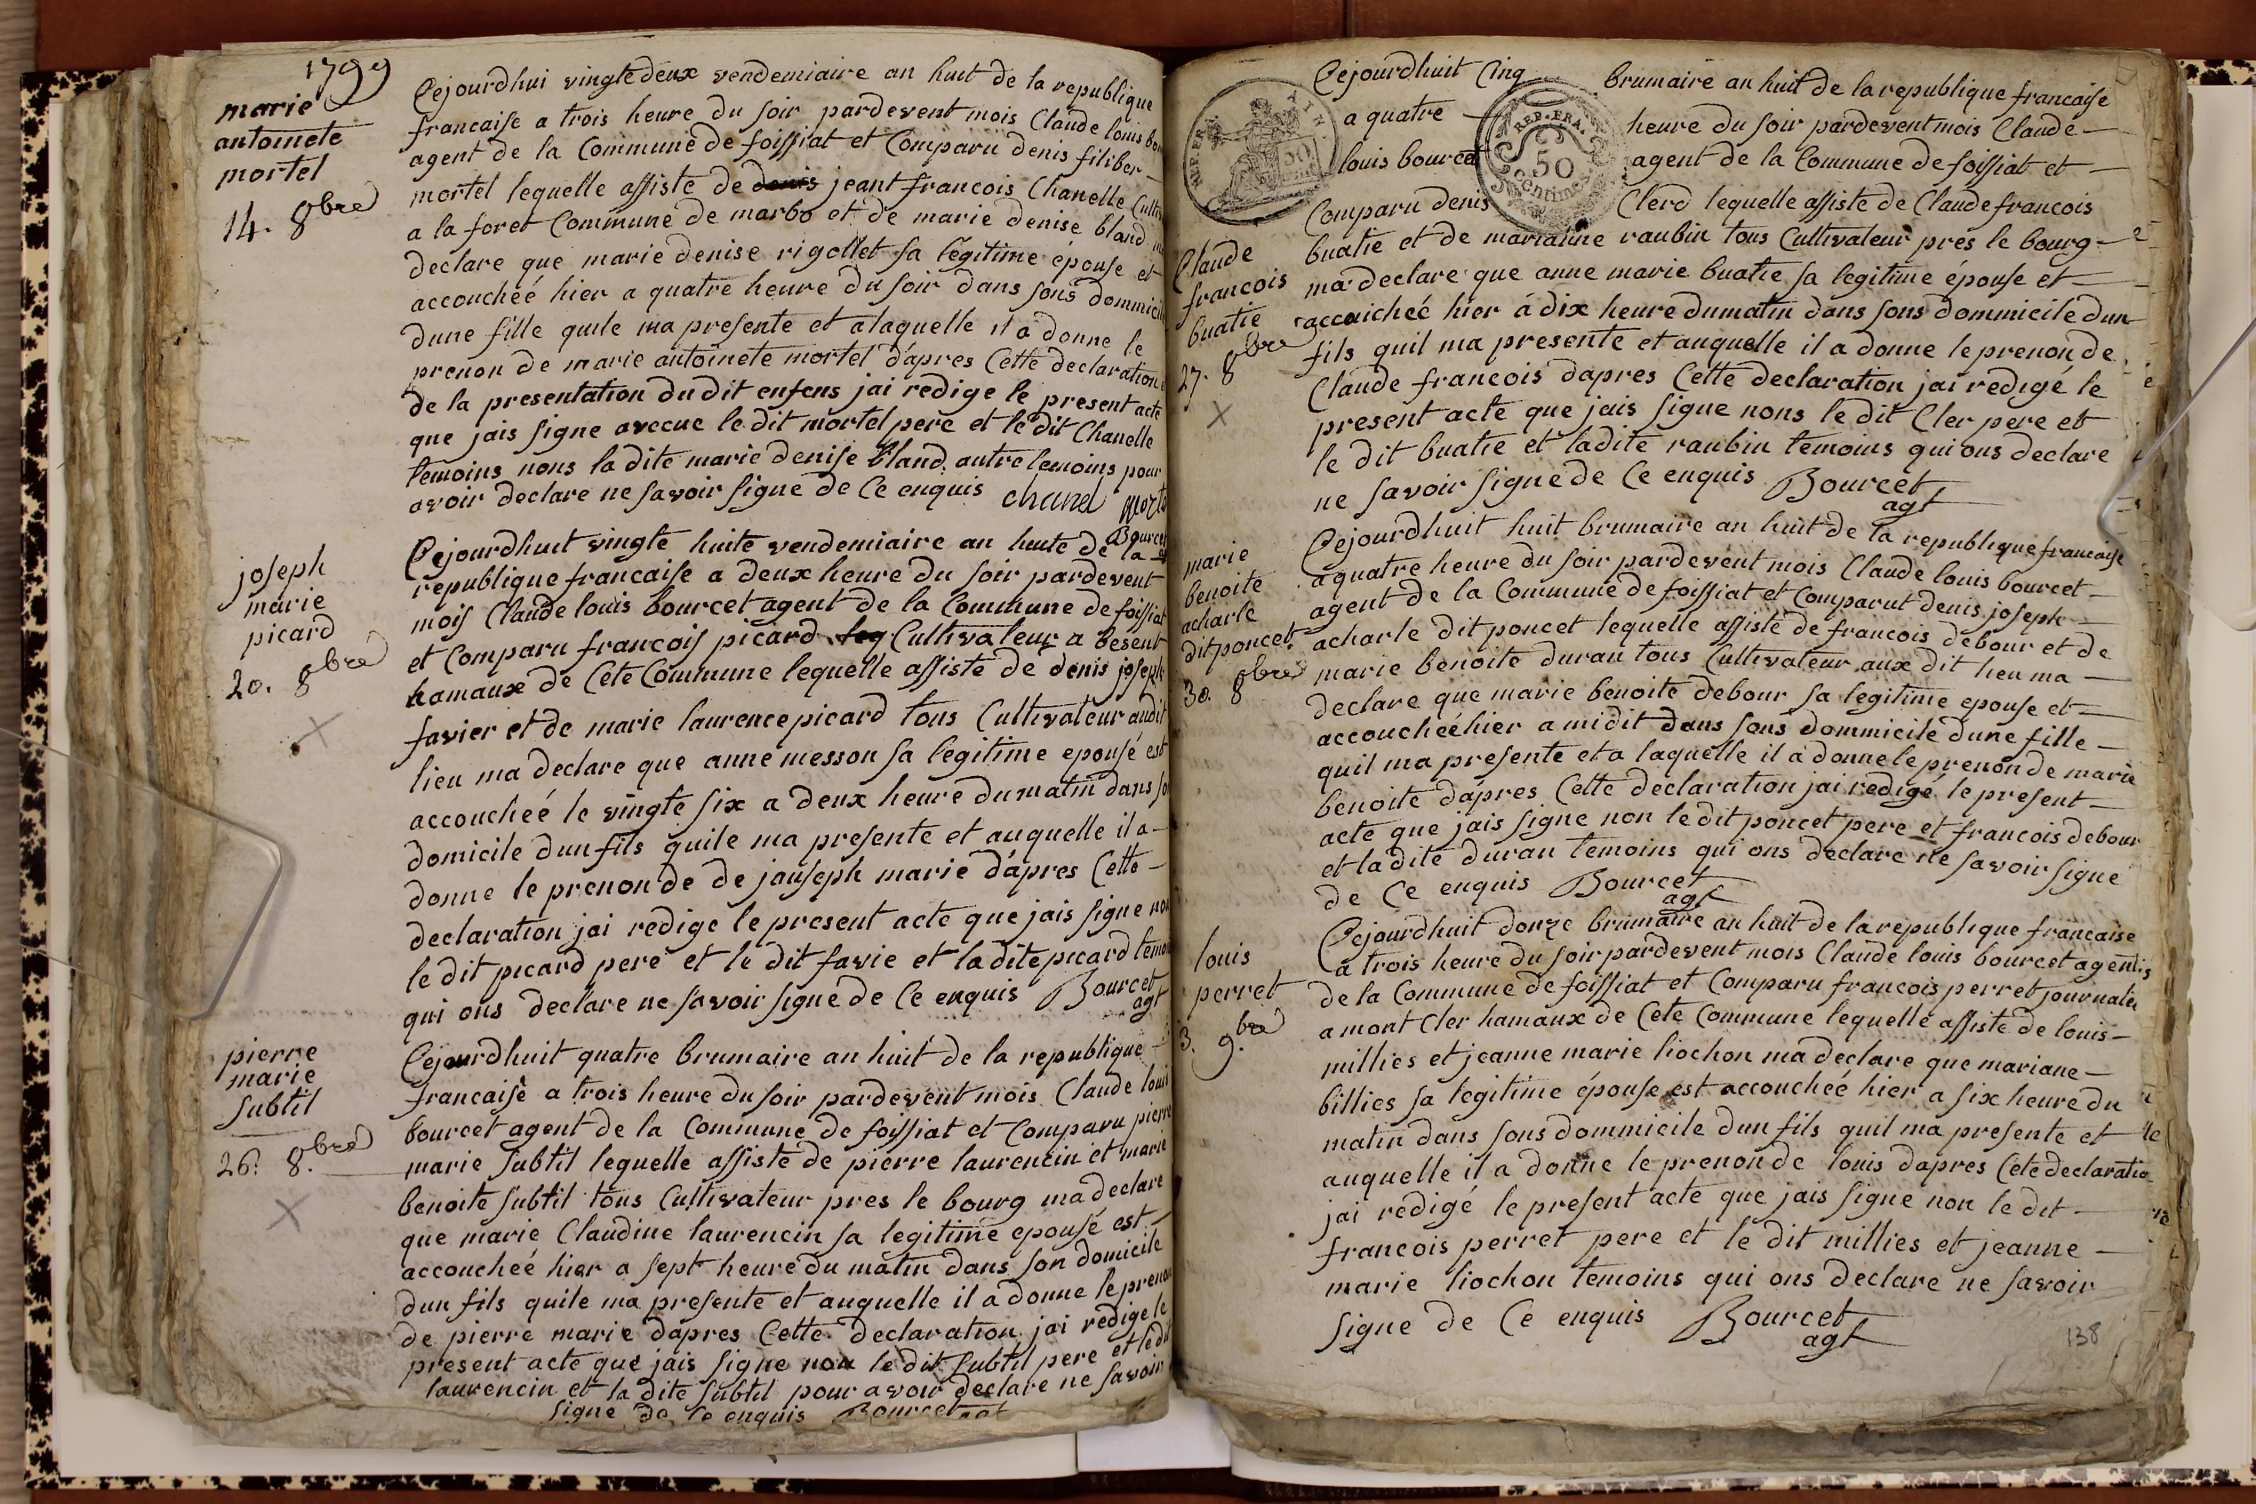 1799
marie
antoinete
mortel
14. 8bre
Cejourdhui vingtedeux vendemiaire an huit de la republique
francaise a trois heure du soir pardevent mois Claude louis
agent de la Commune de foissiat et Comparu denis filiber
mortel lequelle assiste de denis jeant francois Chanelle
a la foret Commune de marbo et de marie denise bland
declare que marie denise rigollet sa legitime épouse et
accoucheé hier a quatre heure du soir dans sons dommicile
dune fille quile ma presente et alaquelle il a donne le
prenon de marie antoinete mortel dapres Cette declaration
de la presentation du dit enfens jai redige le present acte
que jais signe avecue le dit mortel pere et le dit Chanelle
temoins nons la dite marie denise bland autre temoins pour
avoir declare ne savoir signe de Ce enquis chanel
Bourcet
joseph
marie
picard
20. 8bre
Cejourdhuit vingte huite vendemiaire an huite de la
republique francaise a deux heure du soir pardevent
mois Claude louis bourcet agent de la Commune de foissiat
et Comparu francois picard leq Cultivateur a besent
hamaux de Cete Commune lequelle assiste de denis joseph
favier et de marie laurence picard tous Cultivateur audit
lieu ma declare que anne messon sa legitime epousé est
accoucheé le vingte six a deux heure du matin dans
domicile dun fils quile ma presente et auquelle il a
donne le prenon de de jauseph marie dápres Cette
declaration jai redige le present acte que jais signe non
le dit picard pere et le dit favie et la dite picard
qui ons declare ne savoir signe de Ce enquis Bourcet
agt
pierre
marie
subtil
26. 8.bre
Cejourdhuit quatre brumaire an huit de la republique
francaise a trois heure du soir pardevent mois Claude louis
bourcet agent de la Commune de foissiat et Comparu pierre
marie subtil lequelle assiste de pierre laurencin et marie
benoite subtil tous Cultivateur pres le bourg ma declare
que marie Claudine laurencin sa legitime epousé est
accoucheé hier a sept heure du matin dans son domicile
dun fils quile ma presente et auquelle il a donne le prenon
de pierre marie dapres Cette declaration jai redige le
present acte que jais signe non le dit subtil pere et le dit
laurencin et la dite subtil pour avoir declare ne savoir
signe de Ce enquis Bourcet agt
REP. FRA.
50
Centimes
AIN
Claude
francois
buatie
27. 8bre
Cejourdhuit Cinq brumaire an huit de la republique francaise
a quatre heure du soir pardevent mois Claude
louis bourcet agent de la Commune de foissiat et
Comparu denis Clerd lequelle assiste de Claude francois
buatie et de marianne raubin tous Cultivateur pres le bourg
ma declare que anne marie buatie sa legitime épouse et
accaicheé hier á dix heure du matin dans sons dommicile dun
fils quil ma presente et auquelle il a donne le prenon de
Claude francois dapres Cette declaration jai redigé le
present acte que jais signe nons le dit Cler pere et
le dit buatie et ladite raubin temoins qui ons declare
ne savoir signe de Ce enquis Bourcet
agt
marie
benoite
acharle
dit poncet
30. 8bre
Cejourdhuit huit brumaire an huit de la republique francaise
a quatre heure du soir pardevent mois Claude louis bourcet
agent de la Commune de foissiat et Comparut denis joseph
acharle dit poncet lequelle assiste de francois debour et de
marie benoite duran tous Cultivateur aux dit lieu ma
declare que marie benoite debour sa legitime epouse et
accoucheé hier a midit dans sons dommicile dune fille
quil ma presente et a laquelle il a donne le prenon de marie
benoite dápres Cette declaration jai redigé le present
acte que jais signe non le dit poncet pere et francois debour
et la dite duran temoins qui ons declare ne savoir signe
de Ce enquis Bourcet
agt
louis
perret
3. 9.bre
Cejourdhuit donze brumaire an huit de la republique francaise
a trois heure du soir pardevent mois Claude louis bourcet agent
de la Commune de foissiat et Comparu francois perret journalie
a mont Cler hamaux de Cete Commune lequelle assiste de louis
millies et jeanne marie liochon ma declare que mariane
billies sa legitime épouse est accoucheé hier a six heure du
matin dans sons dommicile dun fils quil ma presente et
auquelle il a donne le prenon de louis dapres Cete declaratio
jai redigé le present acte que jais signe non le dit
francois perret pere et le dit millies et jeanne
marie liochon temoins qui ons declare ne savoir
signe de Ce enquis Bourcet
agt
138